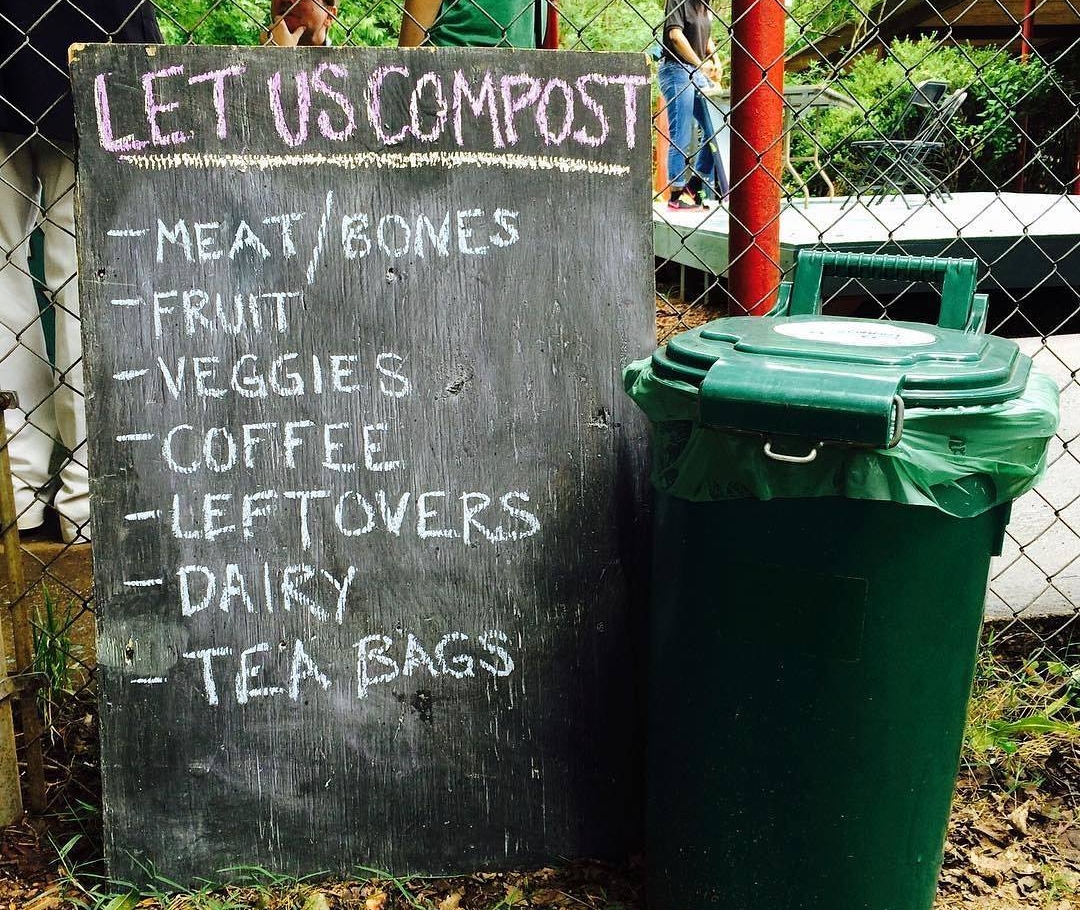 LET US COMPOST
- MEAT/BONES
- FRUIT
- VEGGIES
- COFFEE
- LEFTOVERS
- DAIRY
- TEA BAGS